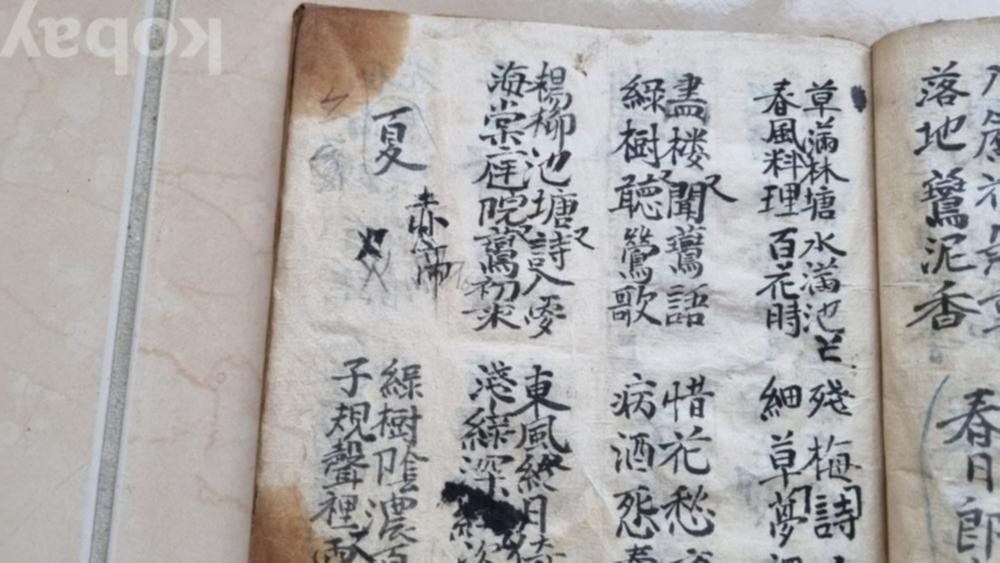 落地鷰泥香
春日郎
草滿林塘水滿池
春風料理百花時
畫楼聞鷰語
綠樹聽鶯歌
楊柳池塘詩入夢
海棠庭院鷰初來
夏
赤帝
殘梅詩
細草夢
惜花愁
病酒
東風終日
淺綠深
綠樹陰濃夏
子規聲裡
kobay